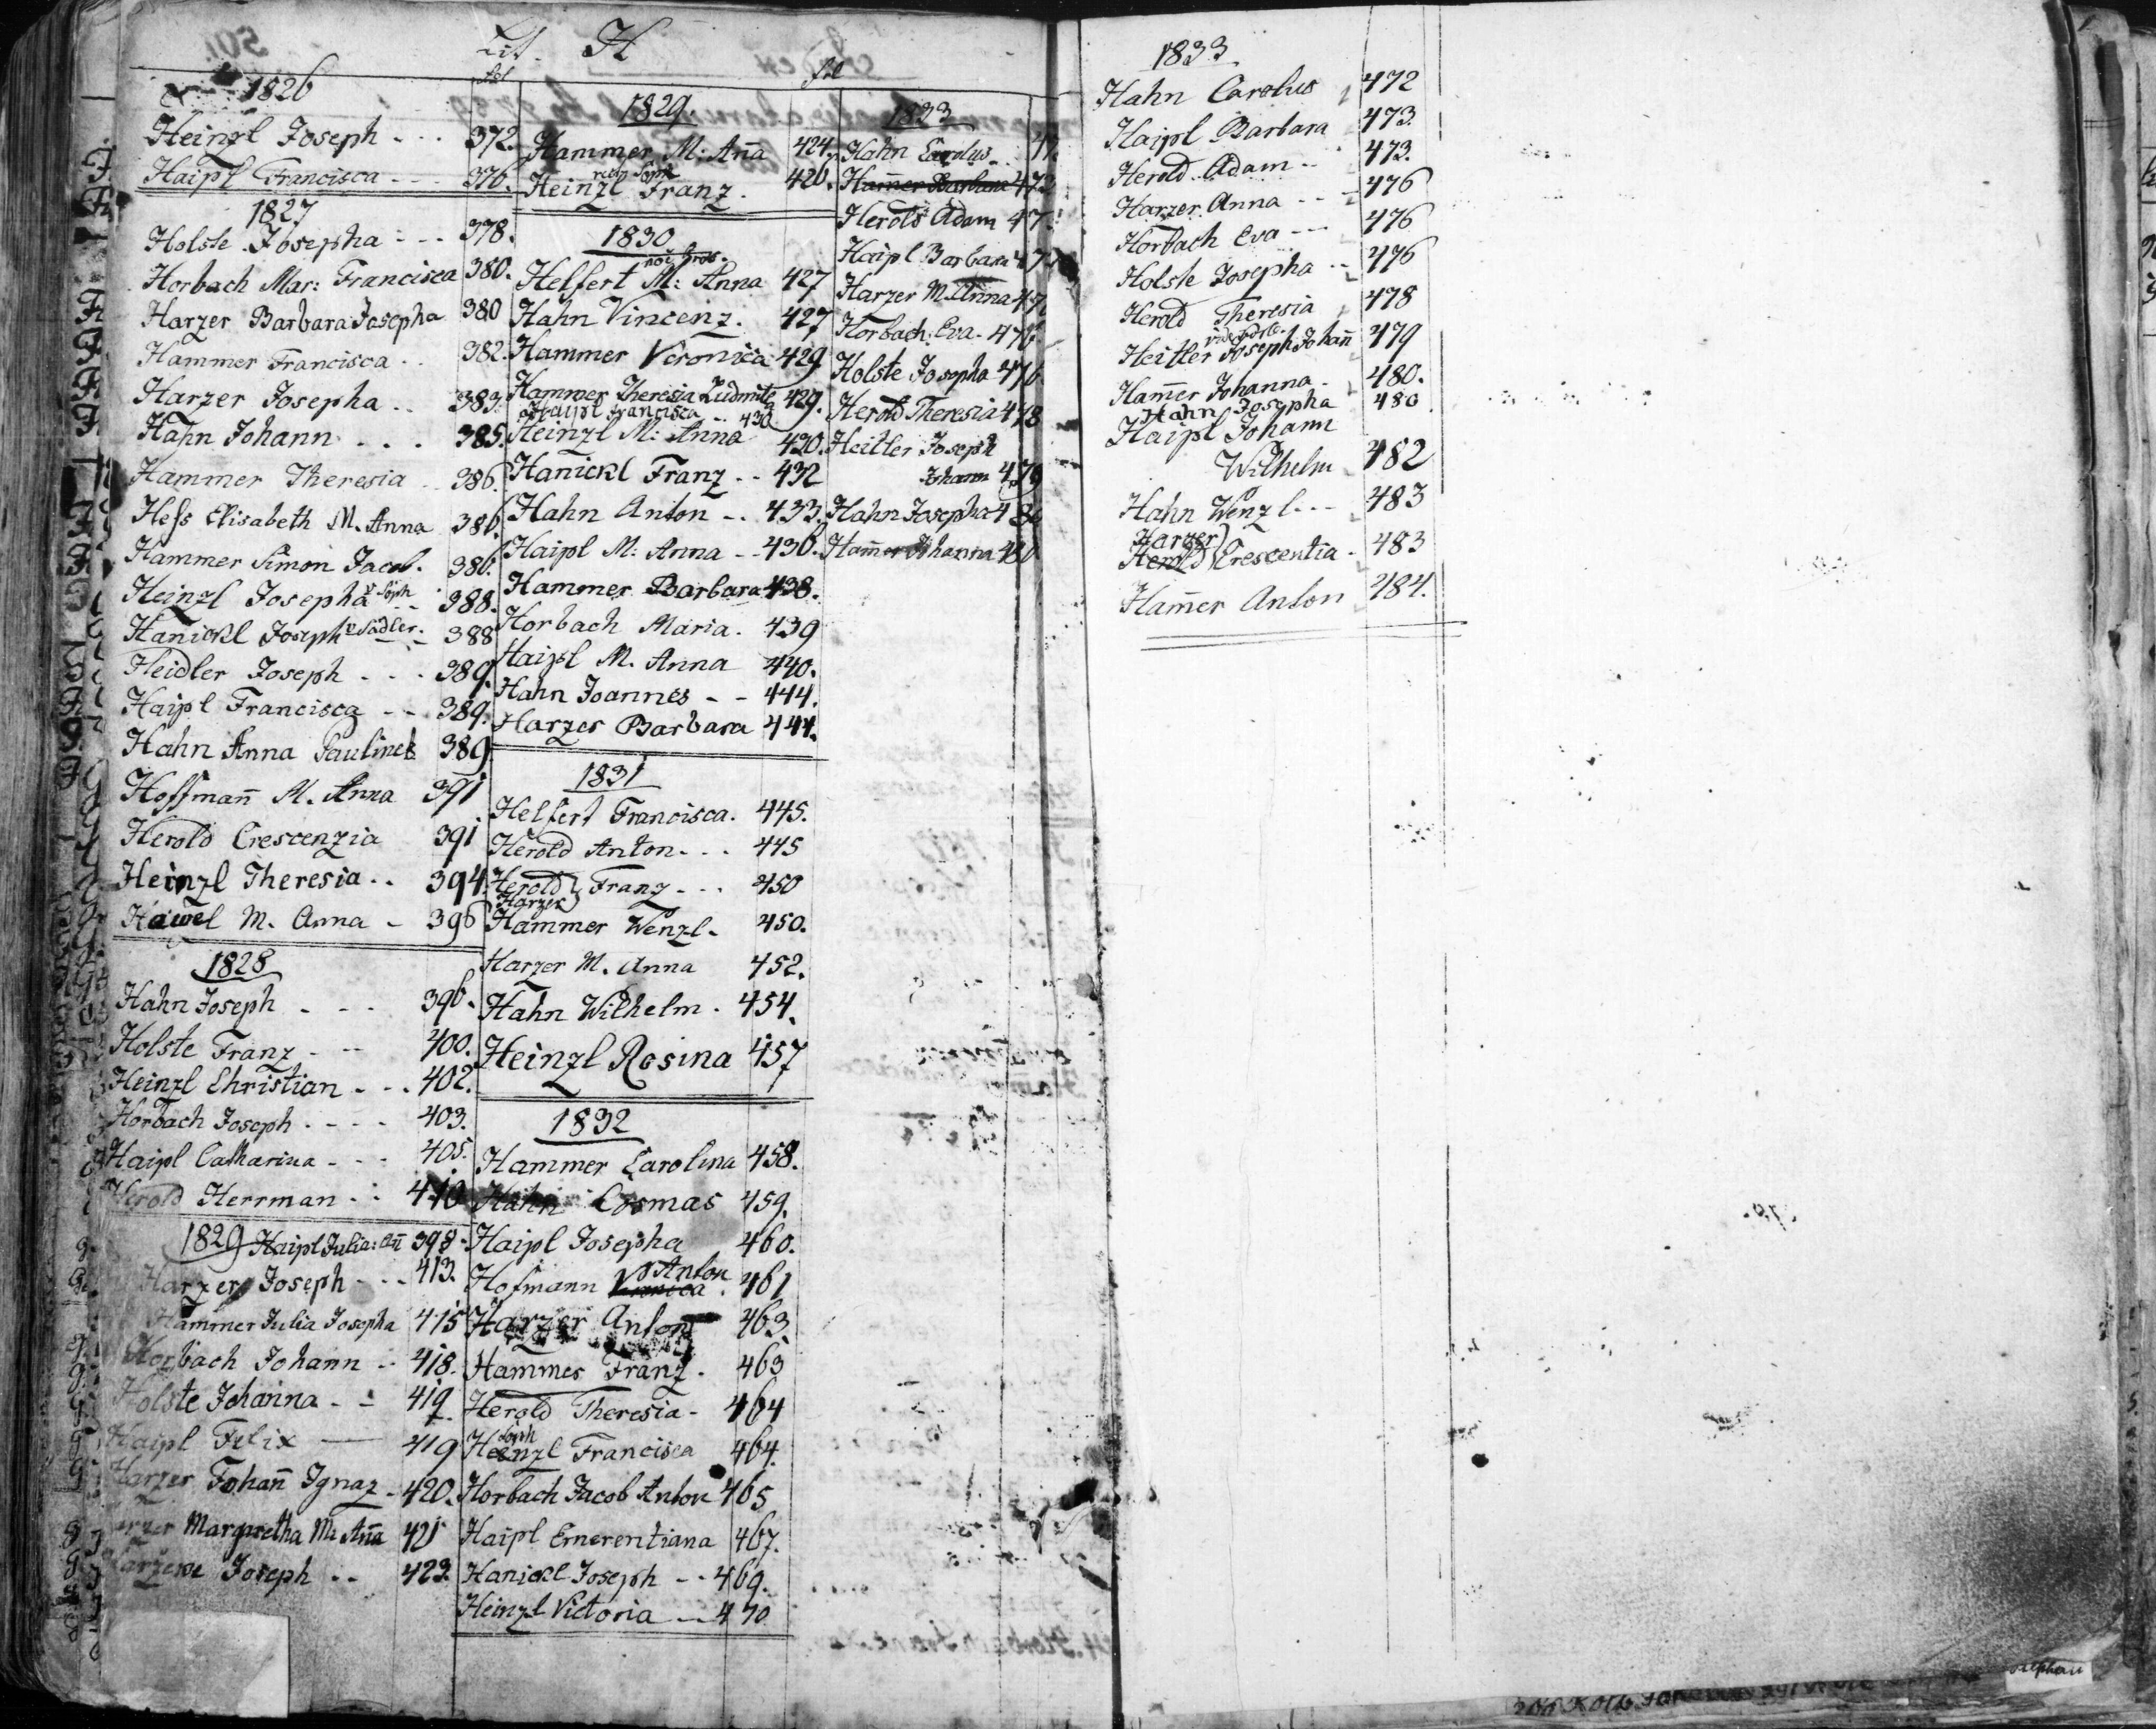 Lit. H
fol
1826
Heinzl Joseph - - - 372.
Haipl Francisca - - - 376.
1827
Holste Josepha - - - 378.
Horbach Mar: Francisca 380.
Harzer Barbara Josepha 380
Hammer Francisca . . 382.
Harzer Josepha . . 383.
Hahn Johann . . . 385.
Hammer Theresia . . 386.
Heſs Elisabeth M. Anna 386.
Hammer Simon Jacob. 386.
Heinzl Josepha 388.
Hanickl Joseph v Sadler. 388
Heidler Joseph - - - 389.
Haipl Francisca - - 389.
Hahn Anna 389
Hoffmann̄ M. Anna 391
Herold Crescenzia 391
Heinzl Theresia . . 394.
Hawel M. Anna - 396
1828
Hahn Joseph - - - 396.
Holste Franz - - - 400.
Heinzl Christian - - . 402.
Horbach Joseph . - - - 403.
Haipl Catharina - - - 405.
Herold Herrman . . 410
1829 Haipl Julia: 398.
Harzer Joseph - . . 413.
Hammer Julia Josepha 415
Horbach Johann . . 418.
Holste Johanna - - 419
Haipl Felix — 419
Harzer Johan̄ Ignaz - 420.
Margaretha 421
Joseph . . 423.
fol
1829.
Hammer M: An̄a 424.
Heinzl Franz. 426.
1830
Helfert M: Anna 427
Hahn Vincenz. 427
Hammer Veronica 429
Hammer Theresia Ludmila 429.
Haipl Francisca . . 430
Heinzl M: Anna 430.
Hanickl Franz . . 432
Hahn Anton - . 433.
Haipl M: Anna - - 436.
Hammer Barbara 438.
Horbach Maria. 439
Haipl M. Anna 440.
Hahn Joannes - - 444.
Harzer Barbara 444.
1831
Helfert Francisca. 445.
Herold Anton - . . 445
Herold } Franz - . . 450
Harzer
Hammer Wenzl. 450.
Harzer M. Anna 452.
Hahn Wilhelm . 454.
Heinzl Rosina 457
1832
Hammer Carolina 458.
Hahn Cosmas 459.
Haipl Josepha 460.
Anton
Hofmann 461
Harzer Anton 463.
Hammer Franz . 463
Herold Theresia - 464
Heinzl Francisca 464.
Horbach Jacob Anton 465
Haipl Emerentiana 467.
Hanickl Joseph - - 469.
Heinzl Victoria - - 470
1833
Hahn Carolus . .
Ham̄er Barbara 473
Herold Adam
Haipl Barbara
Harzer M. Anna
Horbach Eva - 476
Holste Josepha 476
Herold Theresia 478
Heitler Joseph
Johann 479
Hahn Josepha 480
Ham̄er Johanna 480
1833
Hahn Carolus 472
Haipl Barbara 473.
Herold Adam - - 473.
Harzer Anna - - 476
Horbach Eva - - - 476
Holste Josepha - - 476
Herold Theresia 478
Heitler Joseph Johan̄ 479
Ham̄er Johanna - 480.
Hahn Josepha 480
Haipl Johann
Wilhelm 482
Hahn Wenzl . - - 483
Harzer
Herold } Crescentia - 483
Ham̄er Anton 484.